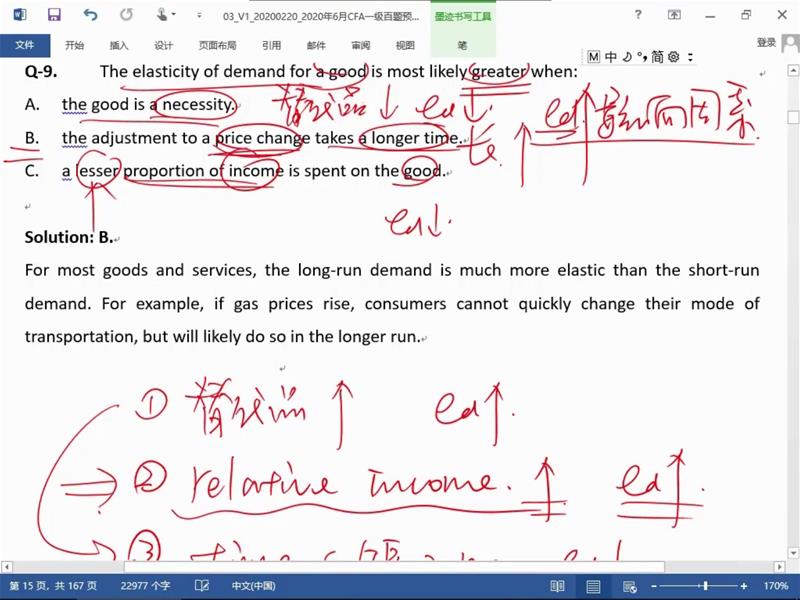 03_V1_20200220_2020年6月CFA一级百题预...
墨迹书写工具
文件 开始 插入 设计 页面布局 引用 邮件 审阅 视图 笔 登录
M 中 简
Q-9. The elasticity of demand for a good is most likely greater when:
A. the good is a necessity. 替代品↓ ed↓. ed 影响因素
B. the adjustment to a price change takes a longer time. 长
C. a lesser proportion of income is spent on the good.
ed↓.
Solution: B.
For most goods and services, the long-run demand is much more elastic than the short-run
demand. For example, if gas prices rise, consumers cannot quickly change their mode of
transportation, but will likely do so in the longer run.
① 替代品↑ ed↑.
② relative income. ↑ ed↑.
③ time
第 15 页，共 167 页 22977 个字 中文(中国) 170%